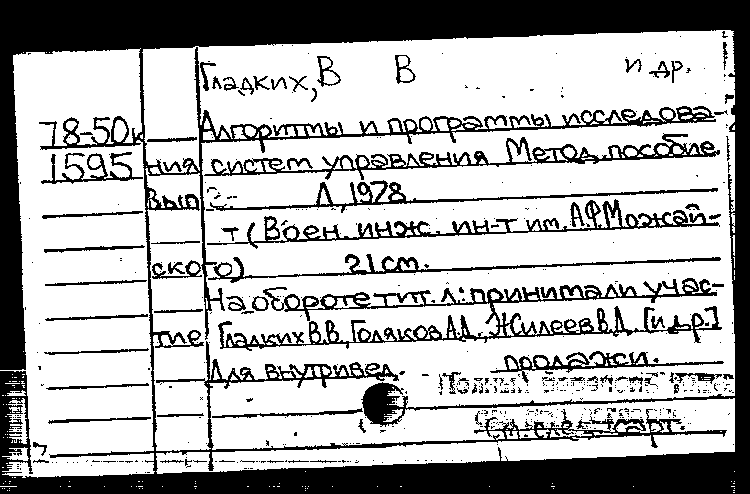 Гладких, В В и др.
78-50к Алгоритмы и программы исследова-
1595 ния систем управления Метод. пособие.
Вып 2- Л, 1978.
т (Воен. инж. ин-т им. А.Ф.Можай-
ского) 21 см.
На обороте тит. л: принимали учас-
тие Гладких В.В., Голяков А.Д., Жилеев В.Д. [и др.]
Для внутривед. продажи.
Полный
См. след. карт.